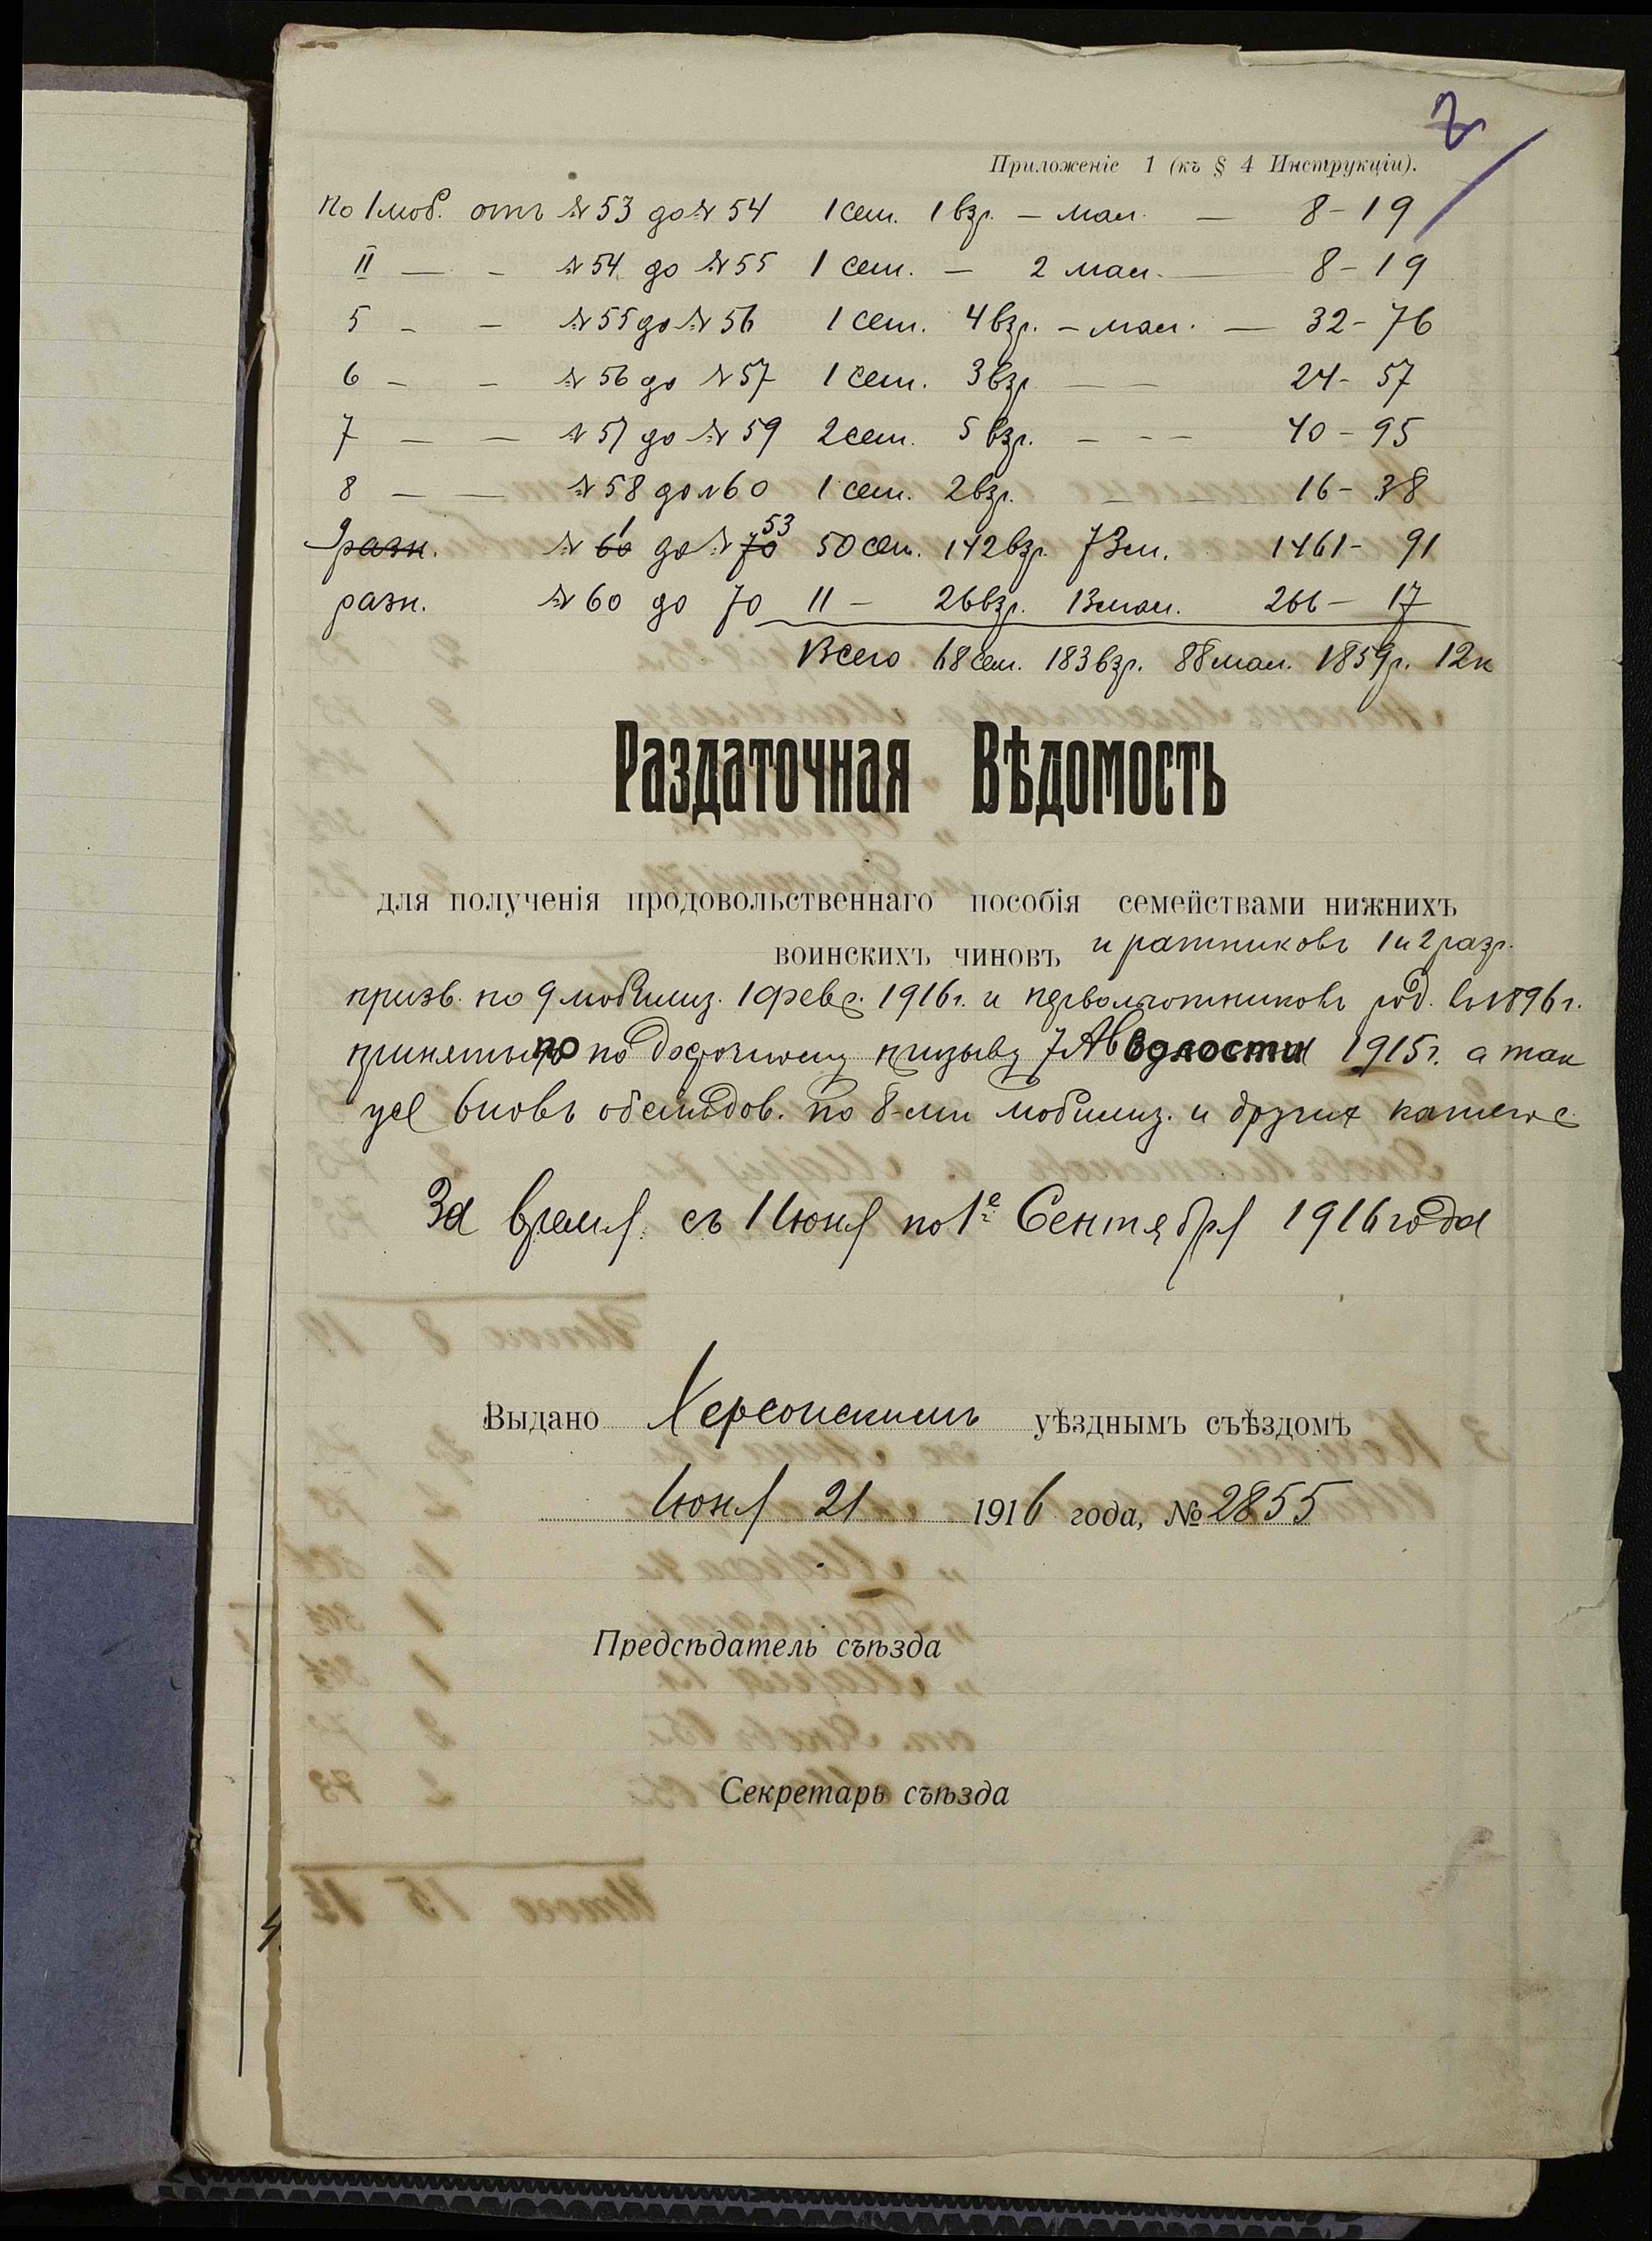 2
Приложеніе 1 (къ § 4 Инструкціи).
по 1 моб. отъ № 53 до № 54 1 сем. 1 взр. — мал. — 8 - 19
II — - № 54 до № 55 1 сем. — 2 мал. — 8 - 19
5 - - № 55 до № 56 1 сем. 4 взр. - мал. — 32 - 76
6 - - № 56 до № 57 1 сем. 3 взр. — — 24 - 57
7 — — № 57 до № 59 2 сем. 5 взр. - - - 40 - 95
8 — — № 58 до № 60 1 сем. 2 взр. - - 16 - 38
9 разн. № 1 до № 53 50 сем. 142 взр. 73 м. 1461 - 91
разн. № 60 до 70 11 — 26 взр. 13 мал. 266 - 17
Всего 68 сем. 183 взр. 88 мал. 1859 р. 12 к
Раздаточная Вѣдомость
для полученія продовольственнаго пособія семействами нижнихъ
воинскихъ чиновъ и ратниковъ 1 и 2 разр.
призв. по 9 мобилиз. 1 февр. 1916 г. и род. въ 1896 г.
по по досрочному призыву 7 Ав волости 1915 г. а так
же вновь обслѣдов. по 8-ми мобилиз. и других
За время съ 1 Июня по 1е Сентября 1916 года
Выдано Херсонскимъ уѣзднымъ съѣздомъ
Июня 21 1916 года, № 2855
Предсѣдатель съѣзда
Секретарь съѣзда